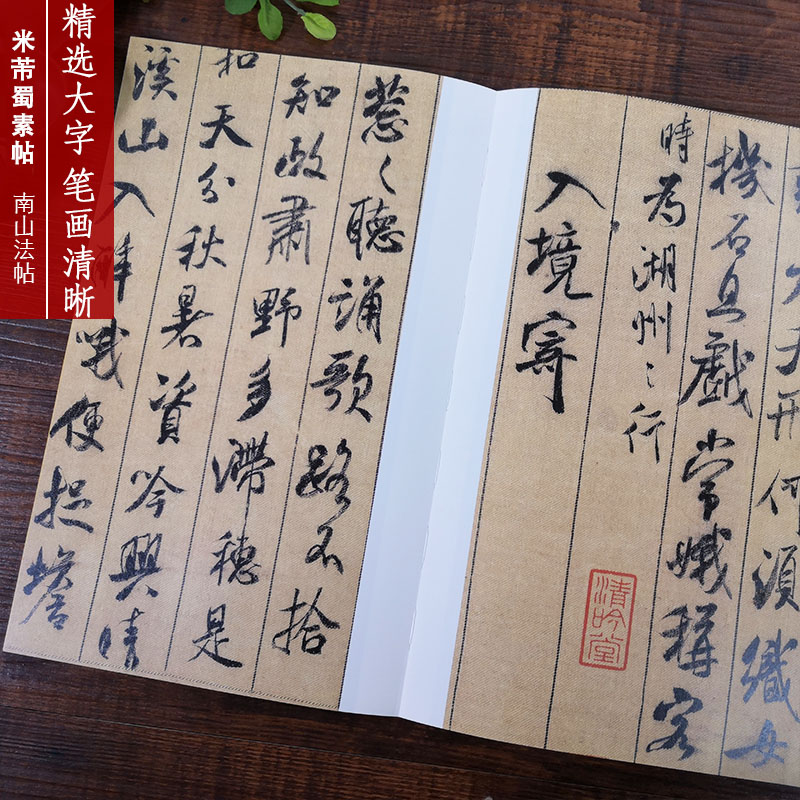 精选大字 笔画清晰
米芾蜀素帖 南山法帖
水天形何須織女
機石且戲常娥稱客
時為湖州〻行
入境寄
清吟堂
葱〻聽誦歌路不拾
知政肅野多滯穗是
和天分秋暑資吟興晴
溪山入醉哦便捉蟾